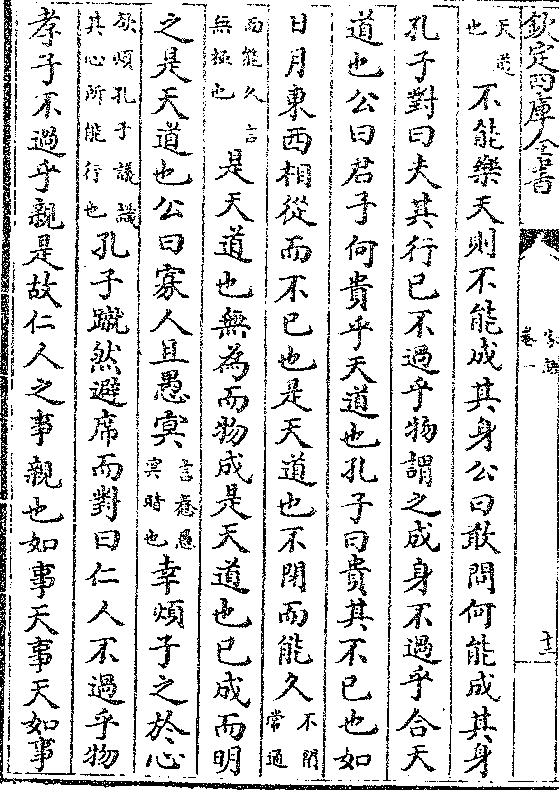 欽定四庫全書
家語
卷一
十三
天道
也
不能樂天則不能成其身公曰敢問何能成其身
孔子對曰夫其行已不過乎物謂之成身不過乎合天
道也公曰君子何貴乎天道也孔子曰貴其不已也如
日月東西相從而不已也是天道也不閉而能久
不閉
常通
而能久言
無極也
是天道也無為而物成是天道也已成而明
之是天道也公曰寡人且愚冥
言惷愚
冥時也
幸煩子之於心
欲煩孔子議識
其心所能行也
孔子蹴然避席而對曰仁人不過乎物
孝子不過乎親是故仁人之事親也如事天事天如事